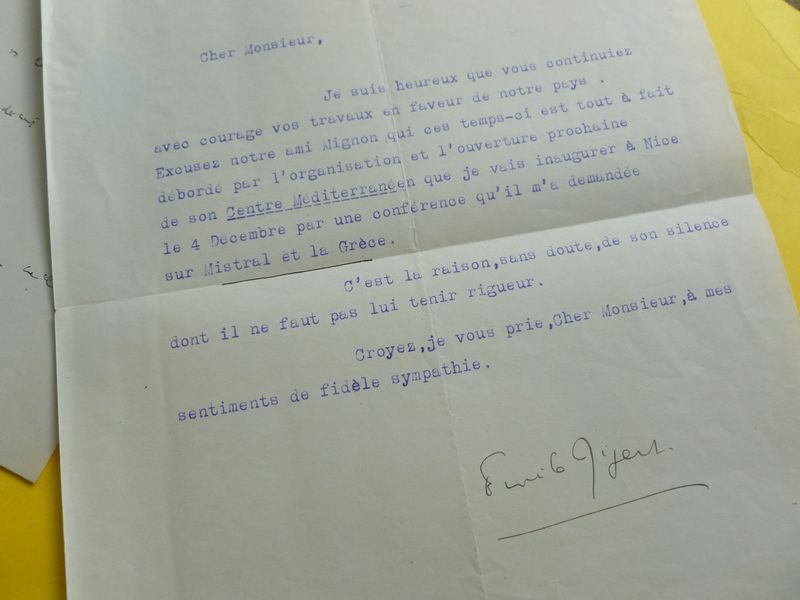 Cher Monsieur,
Je suis heureux que vous continuiez
avec courage vos travaux en faveur de notre pays .
Excusez notre ami Mignon qui ces temps-ci est tout à fait
débordé par l'organisation et l'ouverture prochaine
de son Centre Méditerranéen que je vais inaugurer à Nice
le 4 Décembre par une conférence qu'il m'a demandée
sur Mistral et la Grèce.
C'est la raison,sans doute,de son silence
dont il ne faut pas lui tenir rigueur.
Croyez,je vous prie,Cher Monsieur,à mes
sentiments de fidèle sympathie.